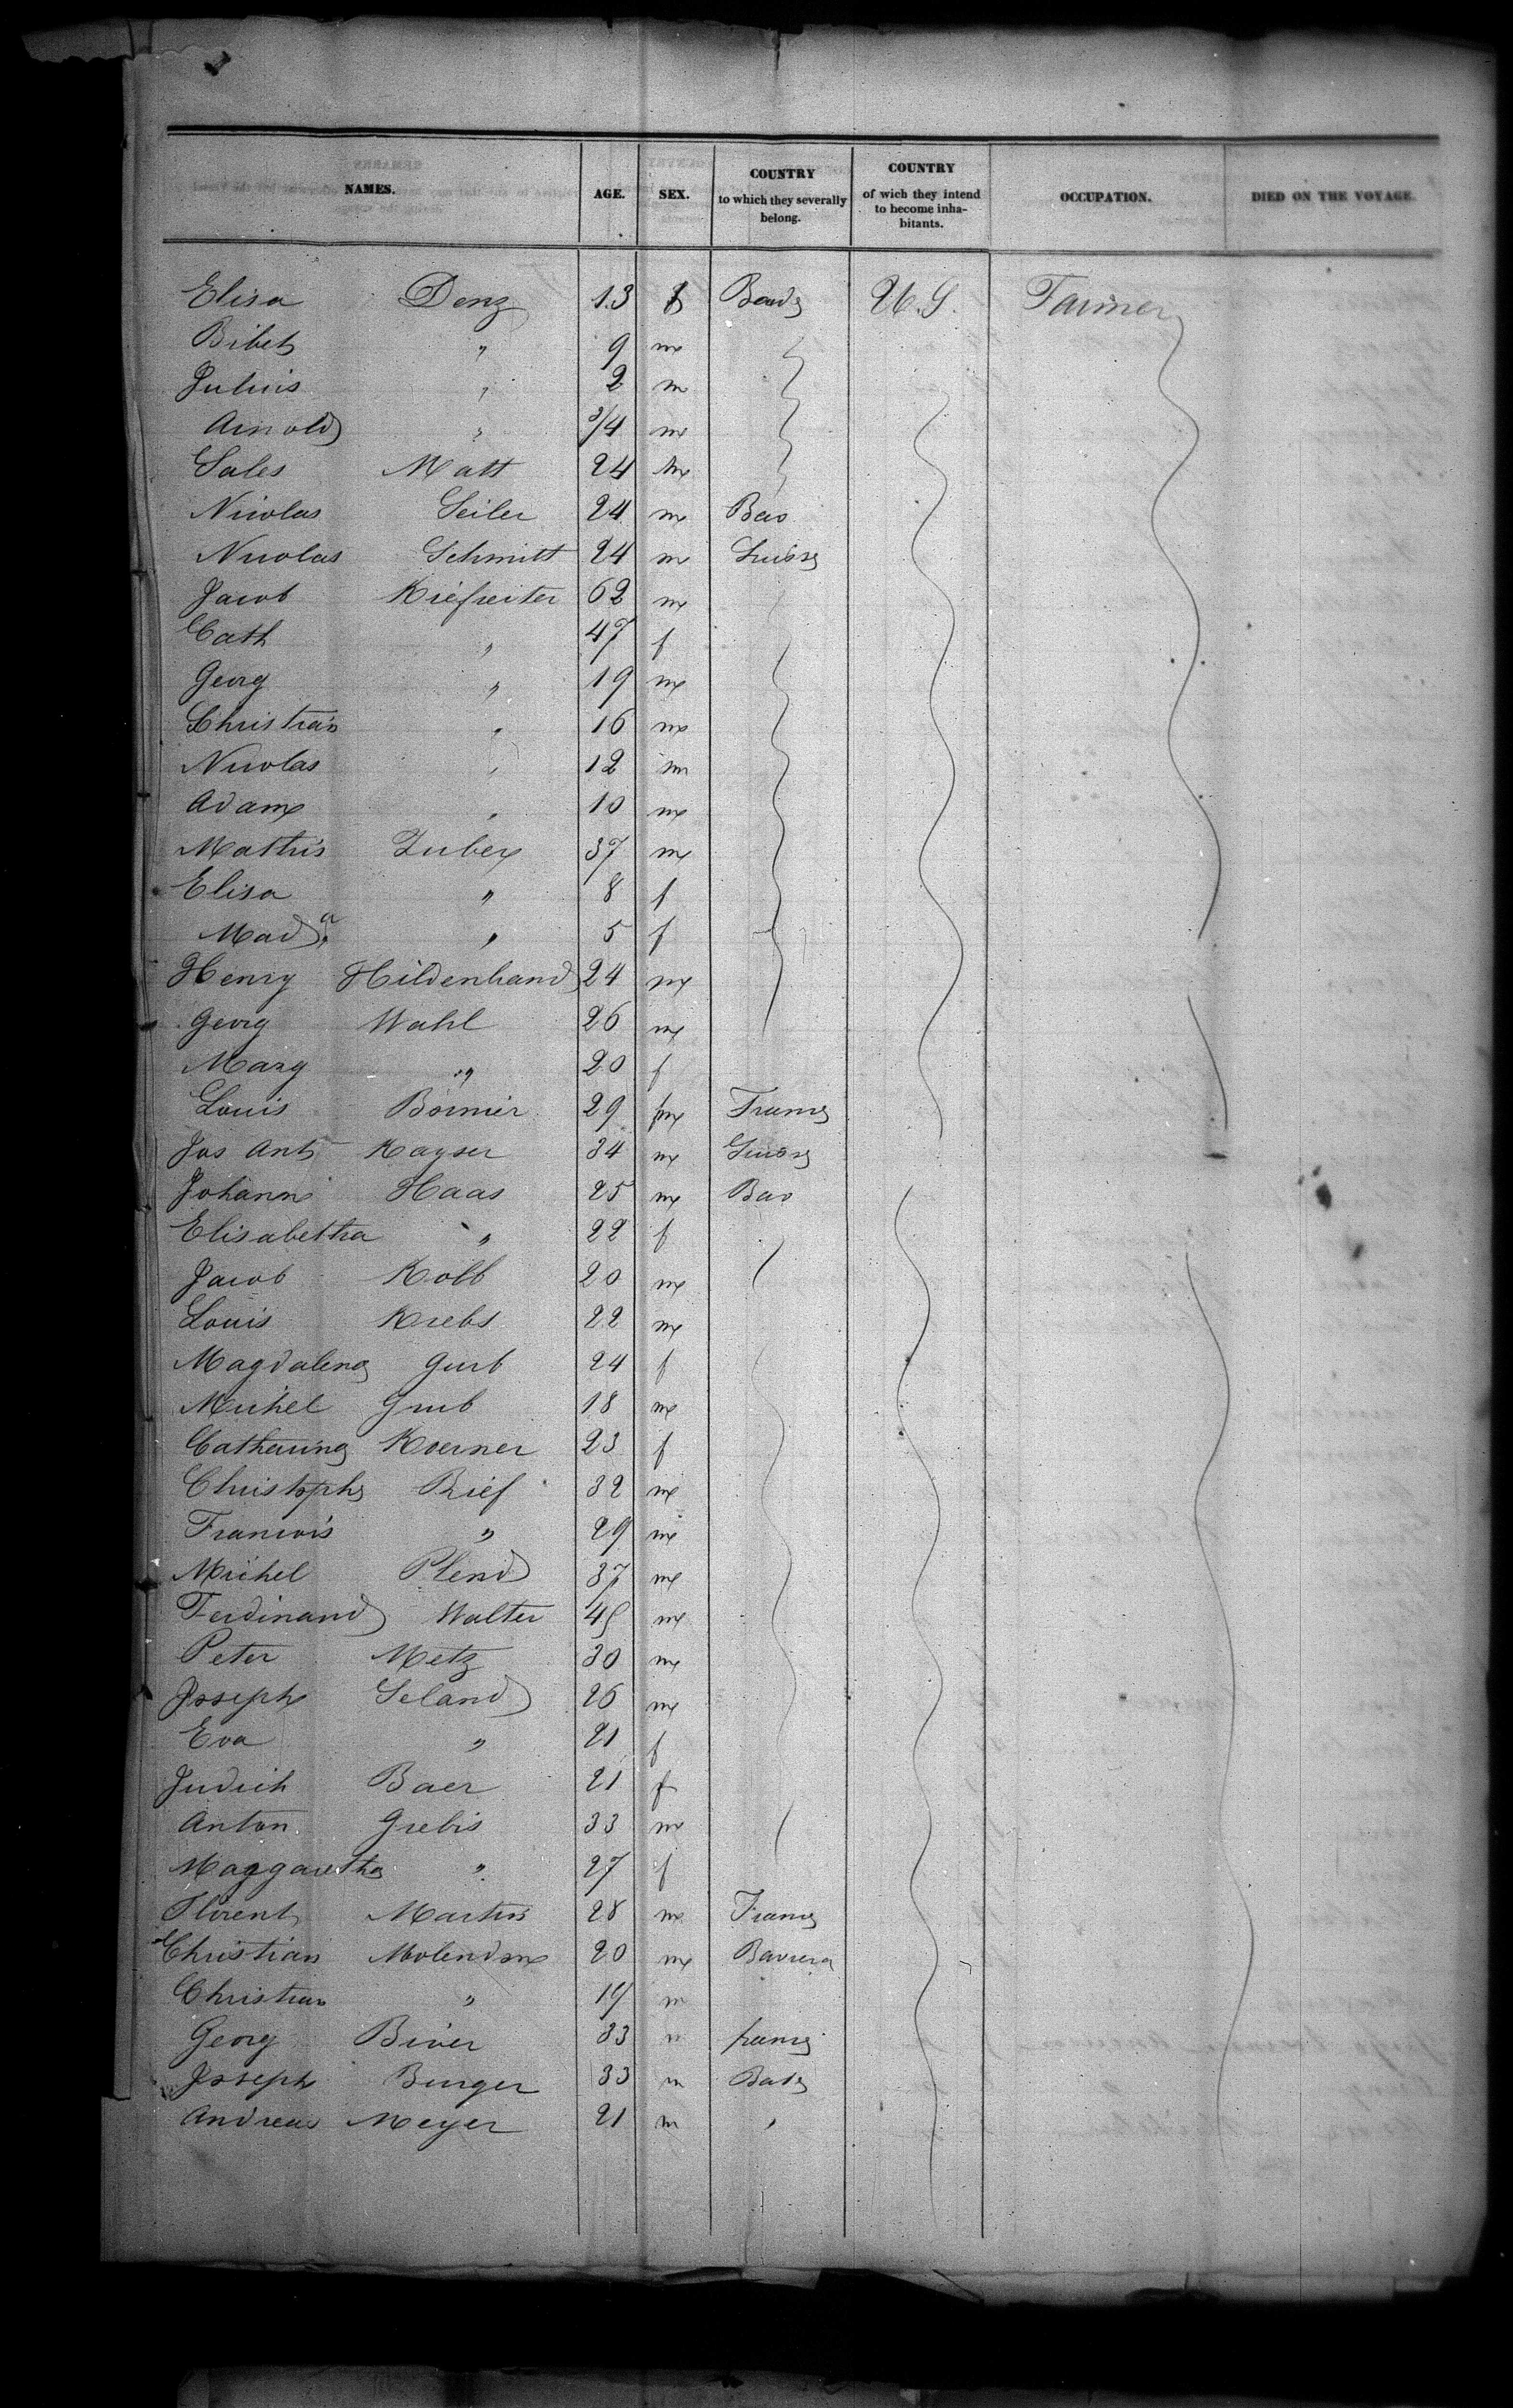 NAMES. AGE. SEX. COUNTRY to which they severally belong. COUNTRY of wich they intend to become inhabitants. OCCUPATION. DIED ON THE VOYAGE.
Elisa Denz 13 f Bade U.S. Farmer
Bibet " 9 m
Julius " 2 m
Arnold " 3/4 m
Sales Matt 24 m
Nicolas Seiler 24 m Bav
Nicolas Schmitt 24 m Suisse
Jacob Kiefreiter 62 m
Cath " 47 f
Georg " 19 m
Christian " 16 m
Nicolas " 12 m
Adam " 10 m
Mathis Zuber 37 m
Elisa " 8 f
Mad.a " 5 f
Henry Hildenbrand 24 m
Georg Wahl 26 m
Marg " 20 f
Louis 29 m France
Jos Ant Kayser 34 m Suisse
Johann Haas 25 m Bav
Elisabetha " 22 f
Jacob Kolb 20 m
Louis Krebs 22 m
Magdalena Gurb 24 f
Michel Grub 18 m
Catharina Koerner 23 f
Christophe Rief 32 m
Francois " 29 m
Michel 37 m
Ferdinand Walter 45 m
Peter Metz 30 m
Joseph Seland 26 m
Eva " 21 f
Judith Baer 21 f
Anton Grebis 33 m
Maggaretha " 27 f
Florent Martin 28 m France
Christian 20 m Baviera
Christian " 19 m
Georg Biver 33 m france
Joseph Burger 33 m Bade
Andreas Meyer 21 m "